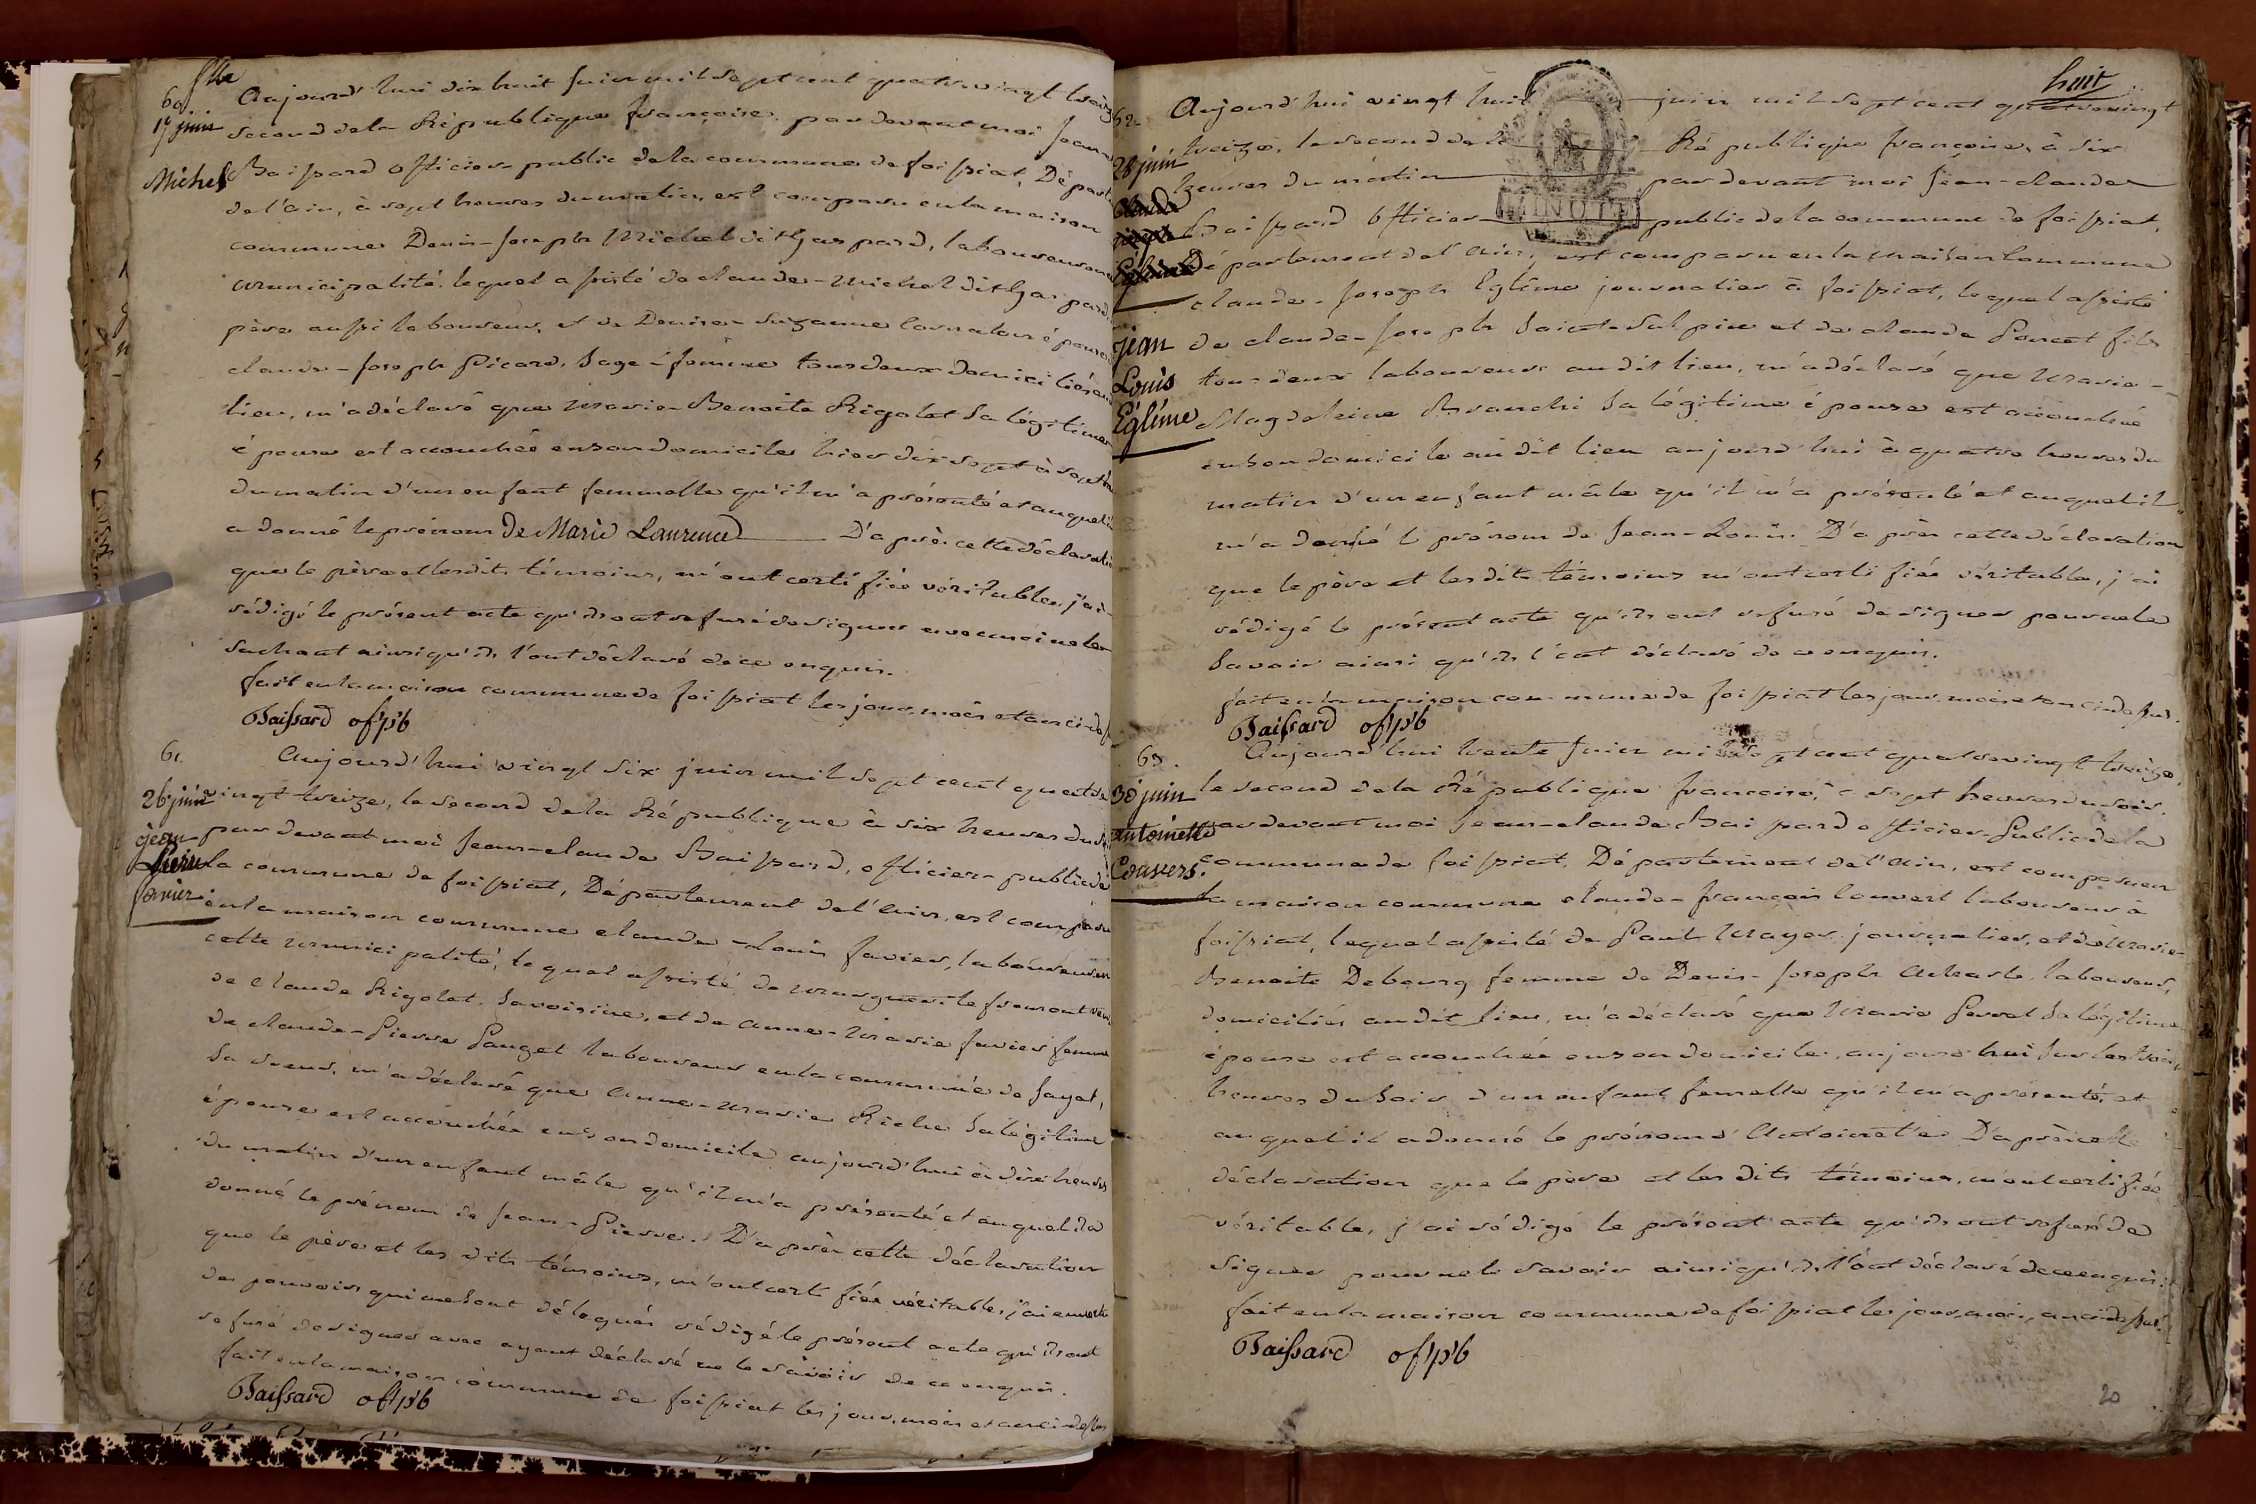 fille
60.
17 juin
Michel
Aujourd'hui dix huit juin mil sept cent quatre vingt treize
second de la République françoise, par devant moi Jean
Baissard officier public de la commune de foissiat, Départ
de l'ain, à sept heures du matin, est comparu en la maison
commune Denis-Joseph Michel dit Gaspard, laboureur en
municipalité, lequel assisté de claude-Michel dit Gaspard
père aussi laboureur, et de Denise-Suzanne épouse
claude-Joseph Picard, Sage-femme tous deux domiciliés au
lieu, m'a déclaré que Marie-Benoite Rigolet Sa légitime
épouse est accouchée en son domicile hier dix sept à sept
du matin d'un enfant femmelle qu'il m'a présenté et auquel
a donné le prénom de Marie Laurence D'après cette déclarati
que le père et lesdits témoins, m'ont certifiée véritable, j'ai
rédigé le présent acte qu'ils ont refusé de signer avec moi ne le
sachant ainsi qu'ils l'ont déclaré de ce enquis.
fait en la maison commune de foissiat les jour, mois et an ci-des
Baissard of. p'b
61.
26 juin
jean
Pierre
favier
Aujourd'hui vingt six juin mil sept cent quatre
vingt treize, le second de la République à six heures du
par devant moi Jean-claude Baissard, officier public de
la commune de foissiat, Département de l'ain, est comparu
en la maison commune claude-Louis favier, laboureur en
cette municipalité, lequel assisté de Marguerite fromont
de Claude Rigolet, Sa voisine, et de Anne-Marie favier femme
de claude-Pierre Pauget laboureur en la commune de Jayat,
Sa soeur, m'a déclaré que Anne-Marie Riche Sa légitime
épouse est accouchée en son domicile aujourd'hui à dix heures
du matin d'un enfant mâle qu'il m'a présenté et auquel il a
donné le prénom de Jean-Pierre. D'après cette déclaration
que le père et les dits témoins, m'ont certifiée véritable, j'ai en vertu
des pouvoirs qui me sont délégués rédigé le présent acte qu'ils ont
refusé de signer avec ayant déclaré ne le savoir de ce enquis.
fait en la maison commune de foissiat les jour, mois et an ci-dessus
Baissard off. p'b
huit
62.
28 juin
jean
Louis
Eglême
Aujourd'hui vingt huit juin mil sept cent quatre vingt
treize, le second de la République françoise, à six
heures du matin par devant moi Jean-claude
Baissard officier public de la commune de foissiat,
MINUTE
Département de l'ain, est comparu en la maison commune
claude-Joseph Eglême journalier à foissiat, lequel assisté
de claude-Joseph Saint-Sulpice et de claude Poncet fils
tous deux laboureurs audit lieu, m'a déclaré que Marie-
Magdeleine Sa légitime épouse est accouchée
en son domicile audit lieu aujourd'hui à quatre heures du
matin d'un enfant mâle qu'il m'a présenté et auquel il
m'a donné le prénom de Jean-Louis. D'après cette déclaration
que le père et lesdits témoins m'ont certifiée véritable, j'ai
rédigé le présent acte qu'ils ont refusé de signer pour ne le
Savoir ainsi qu'ils l'ont déclaré de ce enquis.
fait en la maison commune de foissiat les jour, mois et an ci-dessus.
Baissard of. p'b
63.
30 juin
Antoinette
Convers.
Aujourd'hui trente juin mil sept cent quatre vingt treize,
le second de la République françoise, à sept heures du soir,
par devant moi Jean-claude Baissard officier Public de la
commune de foissiat, Département de l'ain, est comparu en
la maison commune claude-françois Convert laboureur à
foissiat, lequel assisté de Paul Mayer journalier, et de Marie-
Benoite Debourg femme de Denis-Joseph laboureur,
domiciliés audit lieu, m'a déclaré que Marie Perret Sa légitime
épouse est accouchée en son domicile, aujourd'hui sur les trois
heures du Soir d'un enfant femelle qu'il m'a présenté, et
auquel il a donné le prénom d'Antoinette. D'après cette
déclaration que le père et les dits témoins, m'ont certifiée
véritable, j'ai rédigé le présent acte qu'ils ont refusé de
signer pour ne le savoir ainsi qu'ils l'ont déclaré de ce enquis.
fait en la maison commune de foissiat les jour, mois, an ci-dessus.
Baissard of. p'b
20